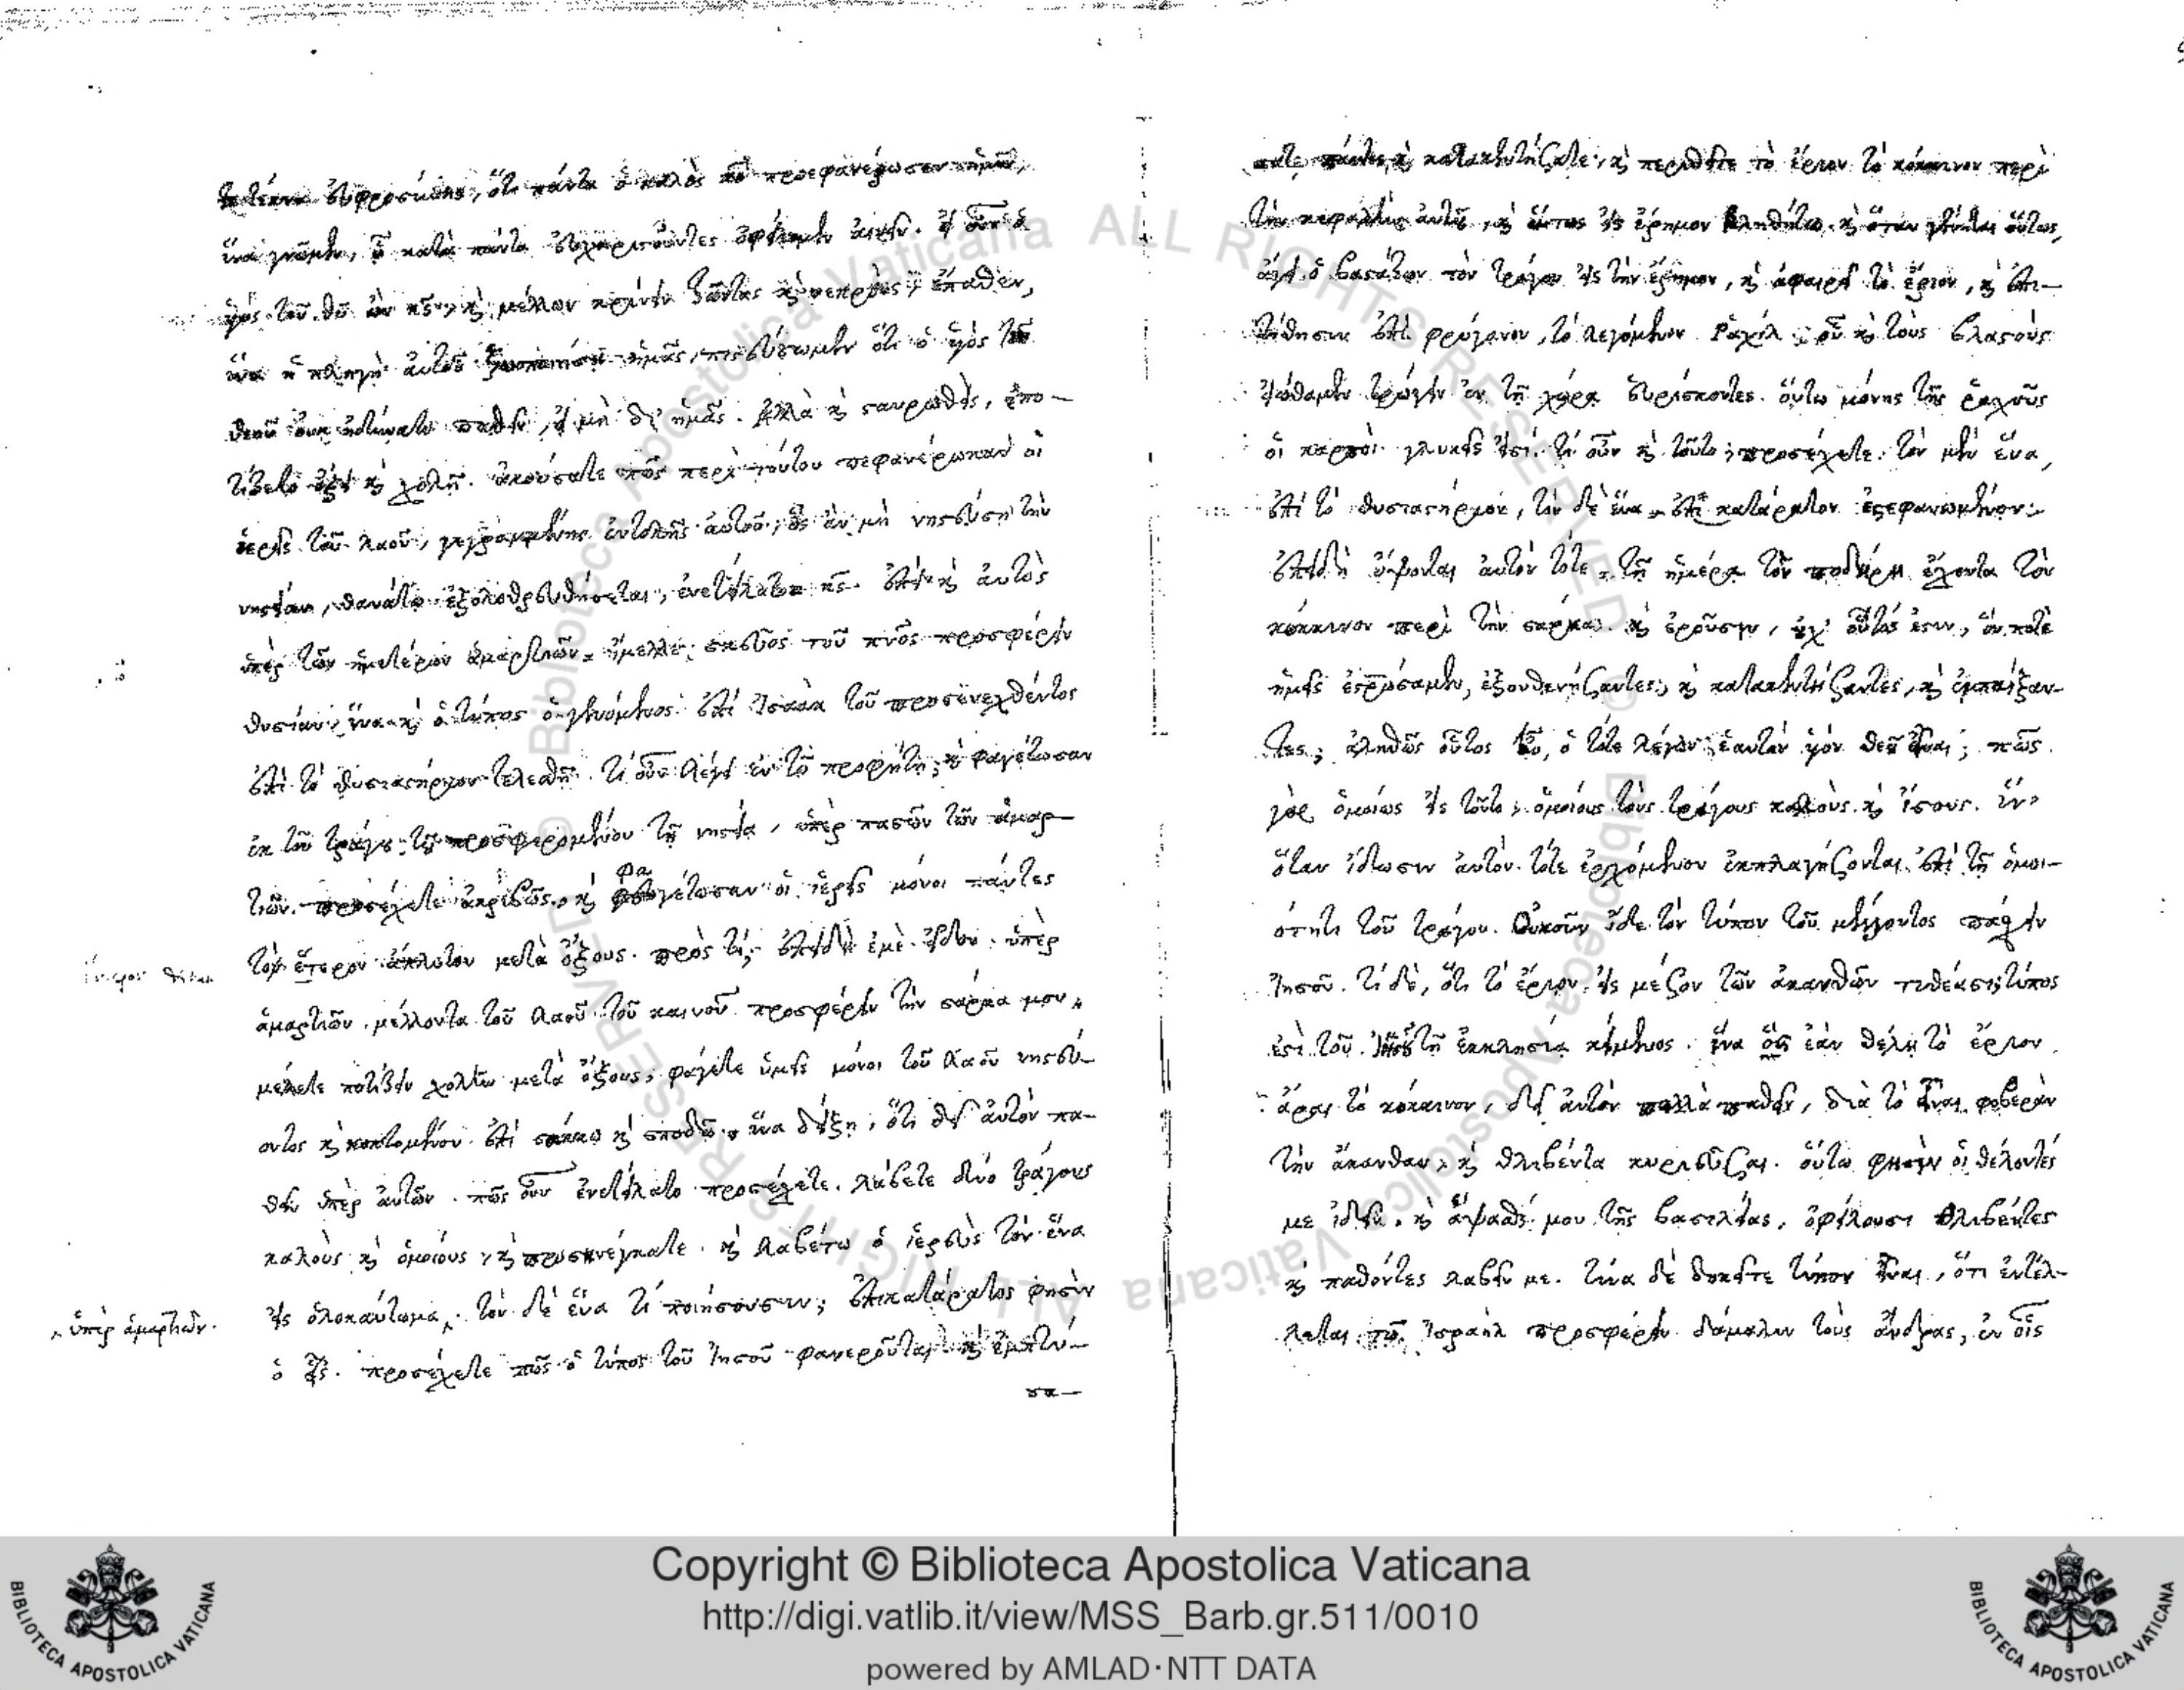 τέκνα εὐφροσύνης, ὅτι πάντα ὁ καλὸς κς προεφανέρωσεν ἡμῖν,
ἵνα γνῶμεν, ᾧ κατὰ πάντα εὐχαριστοῦντες ὀφείλομεν αἰνεῖν. εἰ οὖν ὁ
υἱὸς τοῦ θυ ὢν κς, καὶ μέλλων κρίνειν ζῶντας καὶ νεκροὺς, ἔπαθεν,
ἵνα ἡ πληγὴ αὐτοῦ ζωοποιήσῃ ἡμᾶς, πιστεύσωμεν ὅτι ὁ υἱὸς τοῦ
θεοῦ οὐκ ἠδύνατο παθεῖν, εἰ μὴ δι' ἡμᾶς. ἀλλὰ καὶ σταυρωθεὶς, ἐπο-
τίζετο ὄξει καὶ χολῇ. ἀκούσατε πῶς περὶ τούτου πεφανέρωκαν οἱ
ἱερεῖς τοῦ λαοῦ, γεγραμμένης ἐντολῆς αὐτοῦ, ὃς ἂν μὴ νηστεύσῃ τὴν
νηστείαν, θανάτῳ ἐξολοθρευθήσεται, ἐνετείλατο κς. ἐπεὶ καὶ αὐτὸς
ὑπὲρ τῶν ἡμετέρων ἁμαρτιῶν ἤμελλε, σκεῦος τοῦ πνς προσφέρειν
θυσίαν, ἵνα καὶ ὁ τύπος ὁ γενόμενος ἐπὶ Ἰσαὰκ τοῦ προσενεχθέντος
ἐπὶ τὸ θυσιαστήριον τελεσθῇ. τί οὖν λέγει ἐν τῷ προφήτῃ; καὶ φαγέτωσαν
ἐκ τοῦ τράγου τοῦ προσφερομένου τῇ νηστείᾳ, ὑπὲρ πασῶν τῶν ἁμαρ-
τιῶν. προσέχετε ἀκριβῶς, καὶ φαγέτωσαν οἱ ἱερεῖς μόνοι πάντες
τὸ ἔτερον ἄπλυτον μετὰ ὄξους. πρὸς τί; ἐπειδὴ ἐμὲ εἶδον ὑπὲρ
ἁμαρτιῶν μέλλοντα τοῦ λαοῦ τοῦ καινοῦ προσφέρειν τὴν σάρκα μου,
μέλετε ποτίζειν χολὴν μετὰ ὄξους, φάγετε ὑμεῖς μόνοι τοῦ λαοῦ νηστεύ-
οντος καὶ κοπτομένου ἐπὶ σάκκῳ καὶ σποδῷ, ἵνα δείξῃ, ὅτι δεῖ αὐτὸν πα-
θεῖν ὑπὲρ αὐτῶν. πῶς οὖν ἐνετείλατο προσέχετε. λάβετε δύο τράγους
καλοὺς καὶ ὁμοίους, καὶ προσενέγκατε. καὶ λαβέτω ὁ ἱερεὺς τὸν ἕνα
εἰς ὁλοκαύτωμα. τὸν δὲ ἕνα τί ποιήσουσιν; ἐπικατάρατος φησὶν
ὑπὲρ ἁμαρτιῶν.
ὁ εἷς. προσέχετε πῶς ὁ τύπος τοῦ Ἰησοῦ φανεροῦται καὶ ἐμπτύ-
σα-
σατε πάντες καὶ κατακεντήσατε, καὶ περίθετε τὸ ἔριον τὸ κόκκινον περὶ
τὴν κεφαλὴν αὐτοῦ, καὶ οὕτως εἰς ἔρημον βληθήτω. καὶ ὅταν γένηται οὕτως,
ἄγει ὁ βαστάζων τὸν τράγον εἰς τὴν ἔρημον, καὶ ἀφαιρεῖ τὸ ἔριον, καὶ ἐπι-
τίθησιν ἐπὶ φρύγανον, τὸ λεγόμενον Ῥαχὴλ, οὗ καὶ τοὺς βλαστοὺς
εἰώθαμεν τρώγειν ἐν τῇ χώρᾳ εὑρίσκοντες. οὕτω μόνης τῆς ῥαχοῦς
οἱ καρποὶ γλυκεῖς εἰσί. τί οὖν καὶ τοῦτο; προσέχετε. τὸν μὲν ἕνα,
ἐπὶ τὸ θυσιαστήριον, τὸν δὲ ἕνα ἐπικατάρατον ἐστεφανωμένον.
ἐπειδὴ ὄψονται αὐτὸν τότε τῇ ἡμέρᾳ τὸν ποδήρη ἔχοντα τὸν
κόκκινον περὶ τὴν σάρκα. καὶ ἐροῦσιν, οὐχ' οὗτός ἐστιν, ὅν ποτε
ἡμεῖς ἐσταυρώσαμεν, ἐξουθενήσαντες, καὶ κατακεντήσαντες, καὶ ἐμπαίξαν-
τες; ἀληθῶς οὗτος ἦν, ὁ τότε λέγων ἑαυτὸν υἱὸν θεοῦ εἶναι; πῶς
γὰρ ὁμοίως εἰς τοῦτο; ὁμοίους τοὺς τράγους καλοὺς καὶ ἴσους. ἵν'
ὅταν ἴδωσιν αὐτὸν τότε ἐρχόμενον ἐκπλαγήσονται ἐπὶ τῇ ὁμοι-
ότητι τοῦ τράγου. Οὐκοῦν ἴδε τὸν τύπον τοῦ μέλλοντος πάσχειν
Ἰησοῦ. τί δὲ, ὅτι τὸ ἔριον εἰς μέσον τῶν ἀκανθῶν τιθέασι; τύπος
ἐστὶ τοῦ Ἰησοῦ τῇ ἐκκλησίᾳ κείμενος. ἵνα ὃς ἐὰν θέλῃ τὸ ἔριον
ἆραι τὸ κόκκινον, δεῖ αὐτὸν πολλὰ παθεῖν, διὰ τὸ εἶναι φοβερὰν
τὴν ἄκανθαν, καὶ θλιβέντα κυριεῦσαι. οὕτω φησὶν οἱ θέλοντές
με ἰδεῖν, καὶ ἅψασθαί μου τῆς βασιλείας, ὀφείλουσι θλιβέντες
καὶ παθόντες λαβεῖν με. τίνα δὲ δοκεῖτε τύπον εἶναι, ὅτι ἐντέλ-
λεται τῷ Ἰσραὴλ προσφέρειν δάμαλιν τοὺς ἄνδρας, ἐν οἷς
Copyright © Biblioteca Apostolica Vaticana
http://digi.vatlib.it/view/MSS_Barb.gr.511/0010
powered by AMLAD·NTT DATA